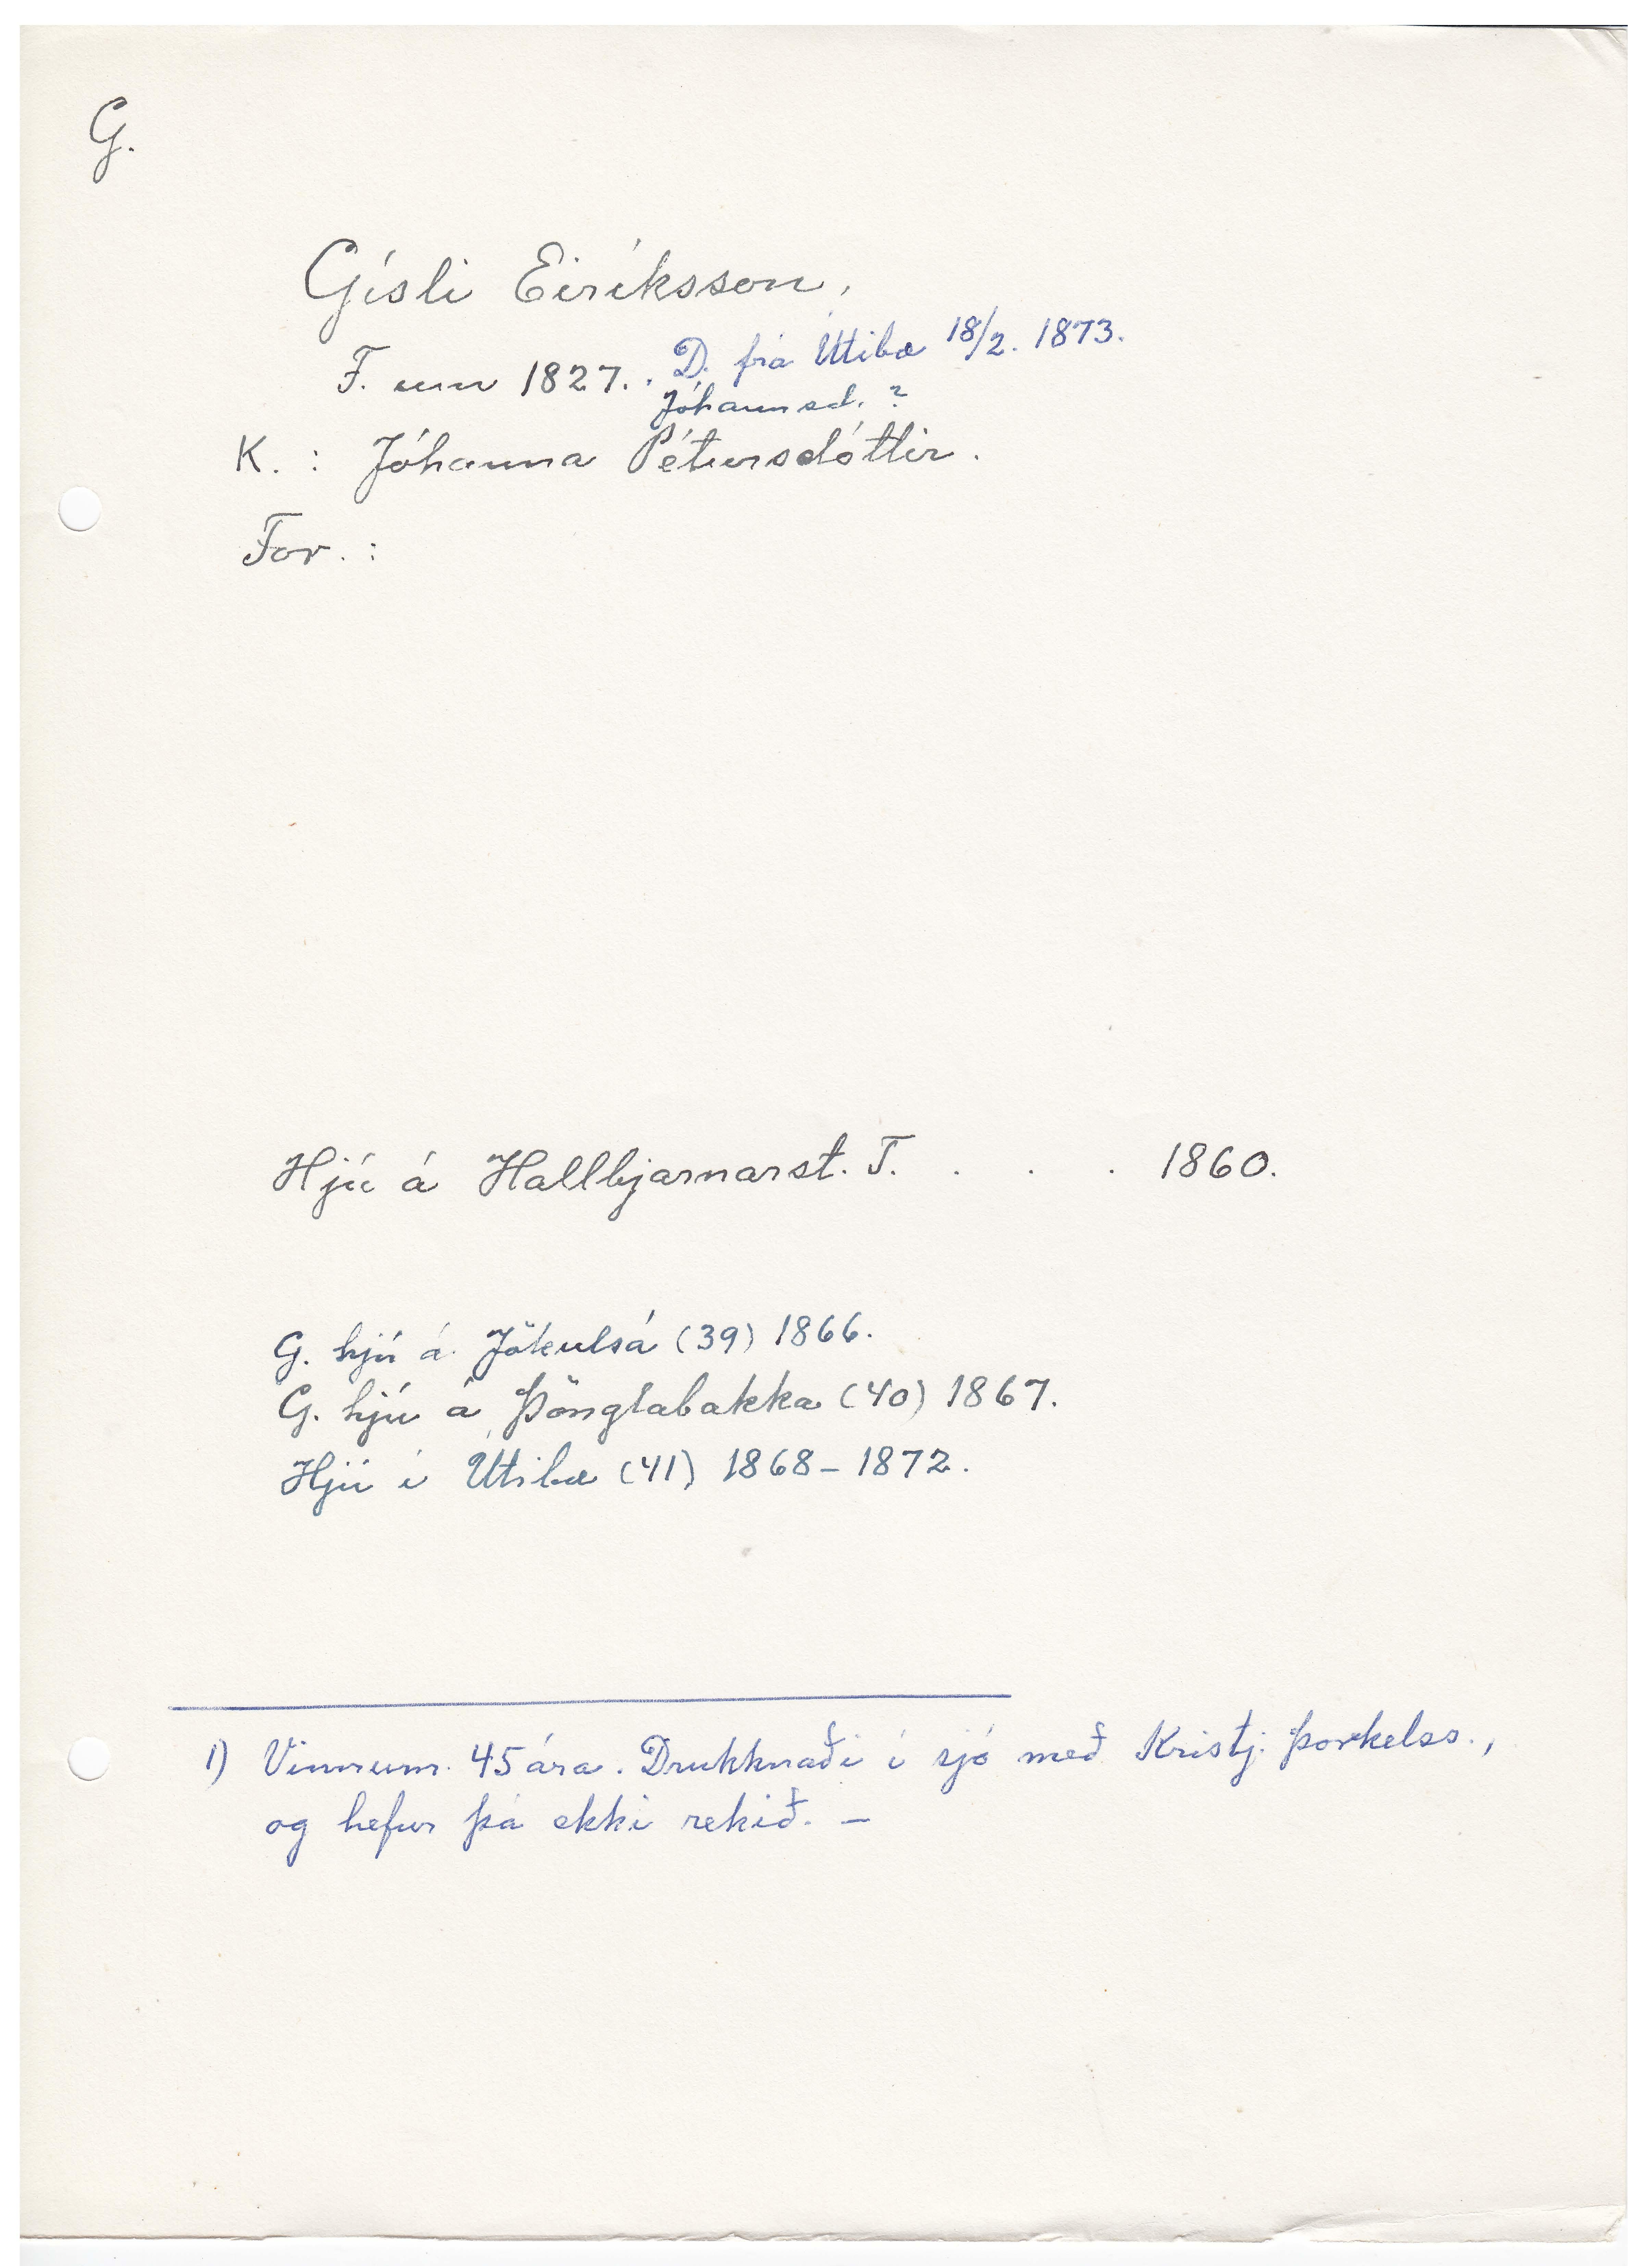 G.
Gísli Eiríksson,
F. um 1827. . D. frá Útibæ 18/2. 1873.
Jóhannsd. ?
K. : Jóhanna Pétursdóttir.
For. :
Hjú á Hallbjarnarst. T. . . . 1860.
G. hjú á Jökulsá (39) 1866.
G. hjú á Þönglabakka (40) 1867.
Hjú í Útibæ (41) 1868-1872.
1) Vinnum. 45 ára. Drukknaði í sjó með Kristj. Þorkelss.,
og hefur þá ekki rekið. -